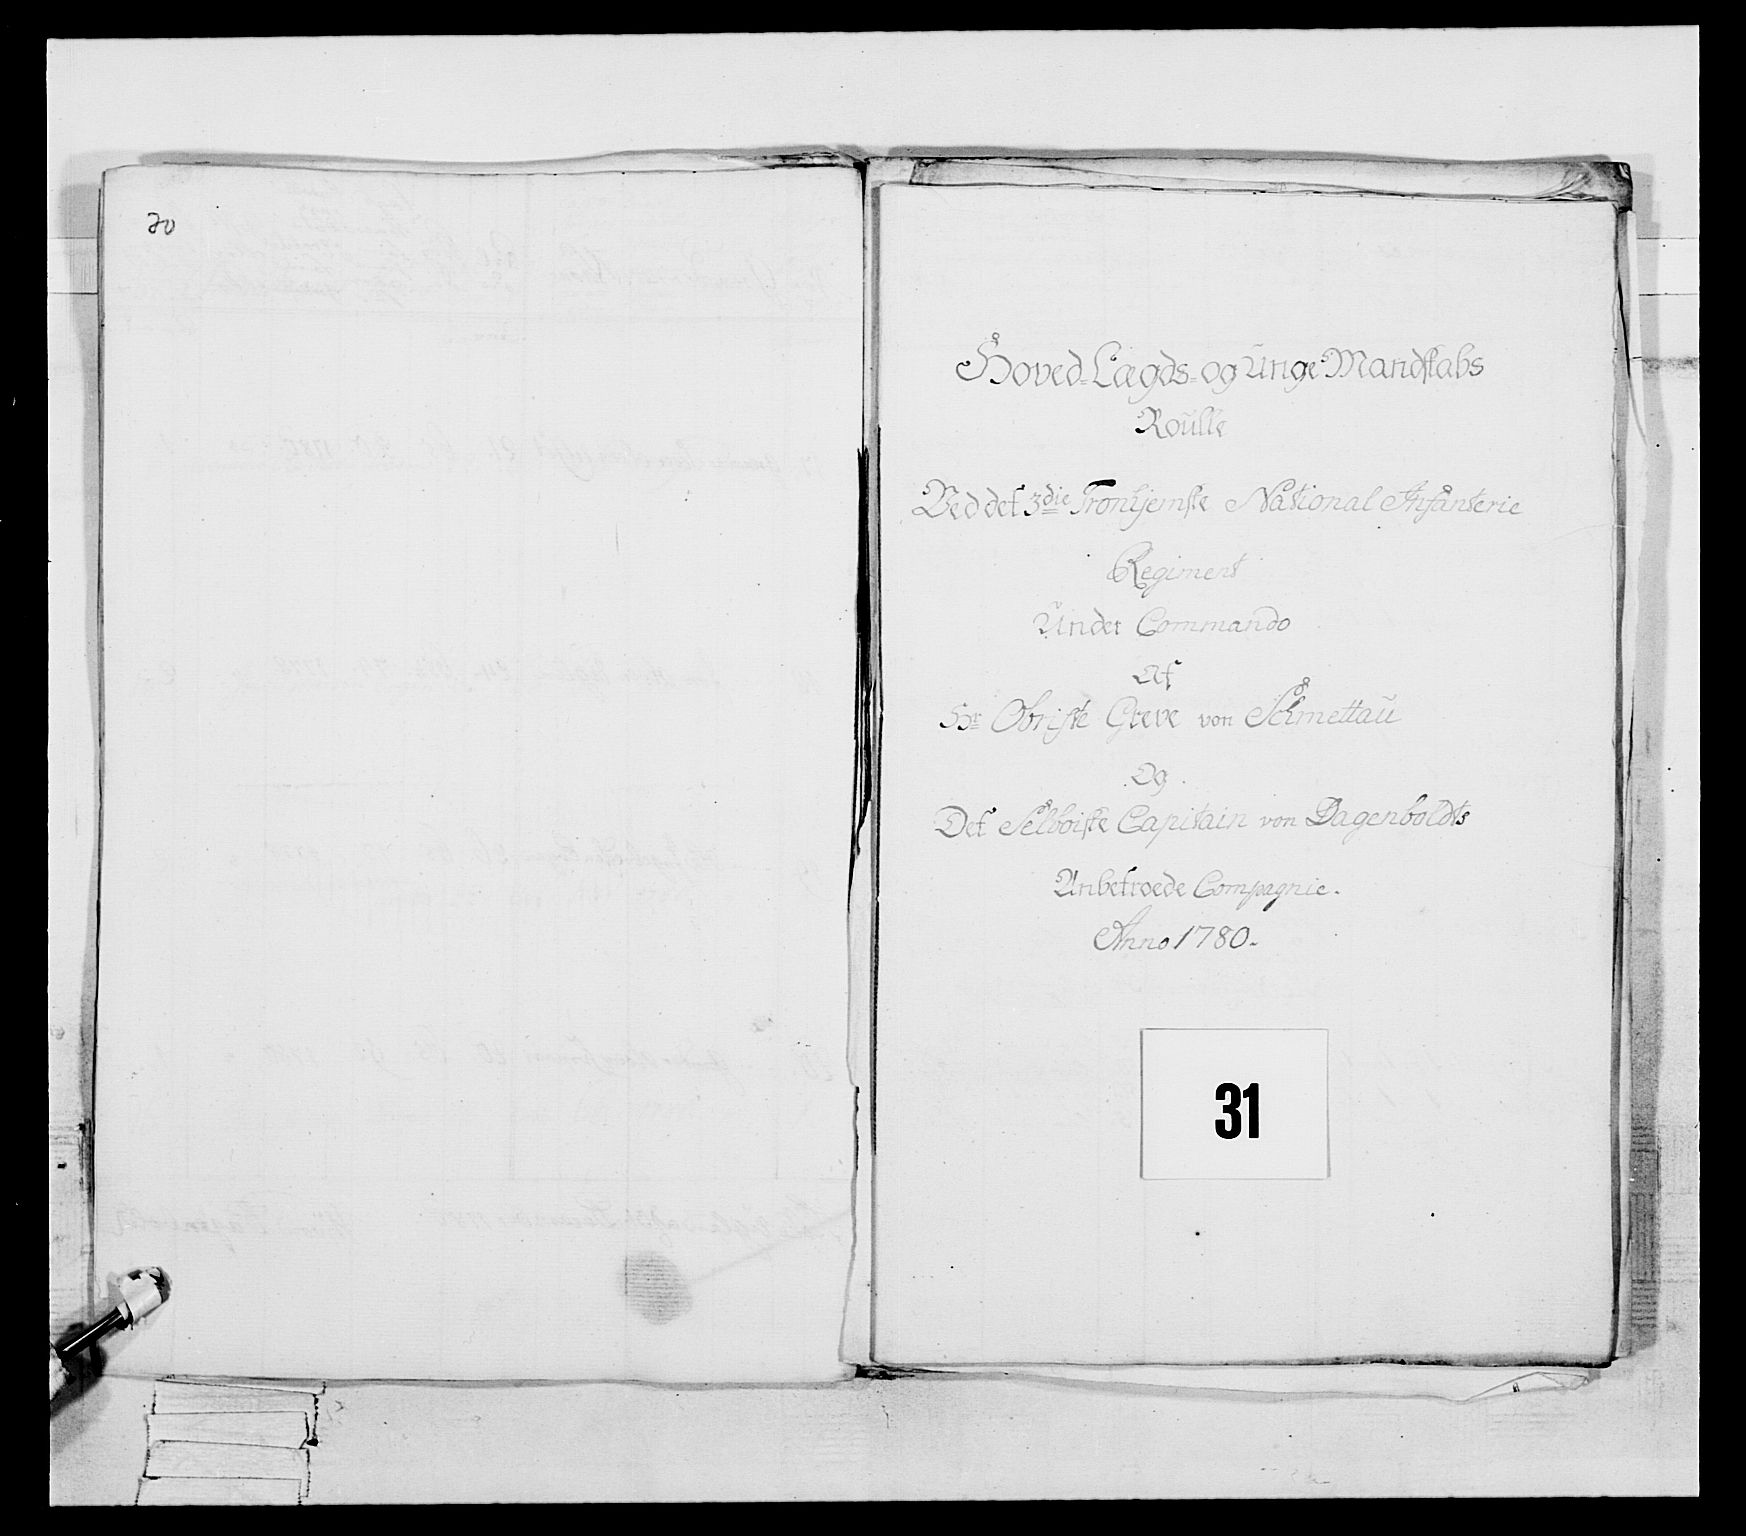 30
Hoved-Lægds-og Unge Mandskabs
Roülle
Ved det 3die Tronhjemske National Infanterie
Regiment
Under Commando
Af
Hr Obriste Greve von Schmettaü
Og
Det Selboiske Capitain von Dagenboldts
Anbetroede Compagnie.
Anno 1780.
31